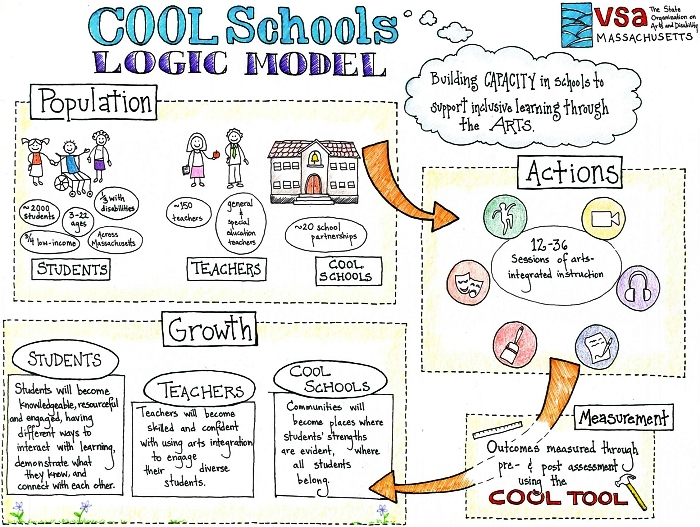 COOL Schools
LOGIC MODEL
vsa
The State
Organization on
Arts and Disability
MASSACHUSETTS
Building CAPACITY in schools to
support inclusive learning through
the ARTS.
Population
~2000
students
3-22
ages
1/3 with
disabilities
3/4 low-income
Across
Massachusetts
STUDENTS
~150
teachers
general
&
special
education
teachers
TEACHERS
~20 school
partnerships
COOL
SCHOOLS
Actions
12-36
Sessions of arts-
integrated instruction
Growth
STUDENTS
Students will become
knowledgeable, resourceful
and engaged, having
different ways to
interact with learning,
demonstrate what
they know, and
connect with each other.
TEACHERS
Teachers will become
skilled and confident
with using arts integration
to engage
their diverse
students.
COOL
SCHOOLS
Communities will
become places where
students' strengths
are evident, where
all students
belong.
Measurement
Outcomes measured through
pre- & post assessment
using the
COOL TOOL